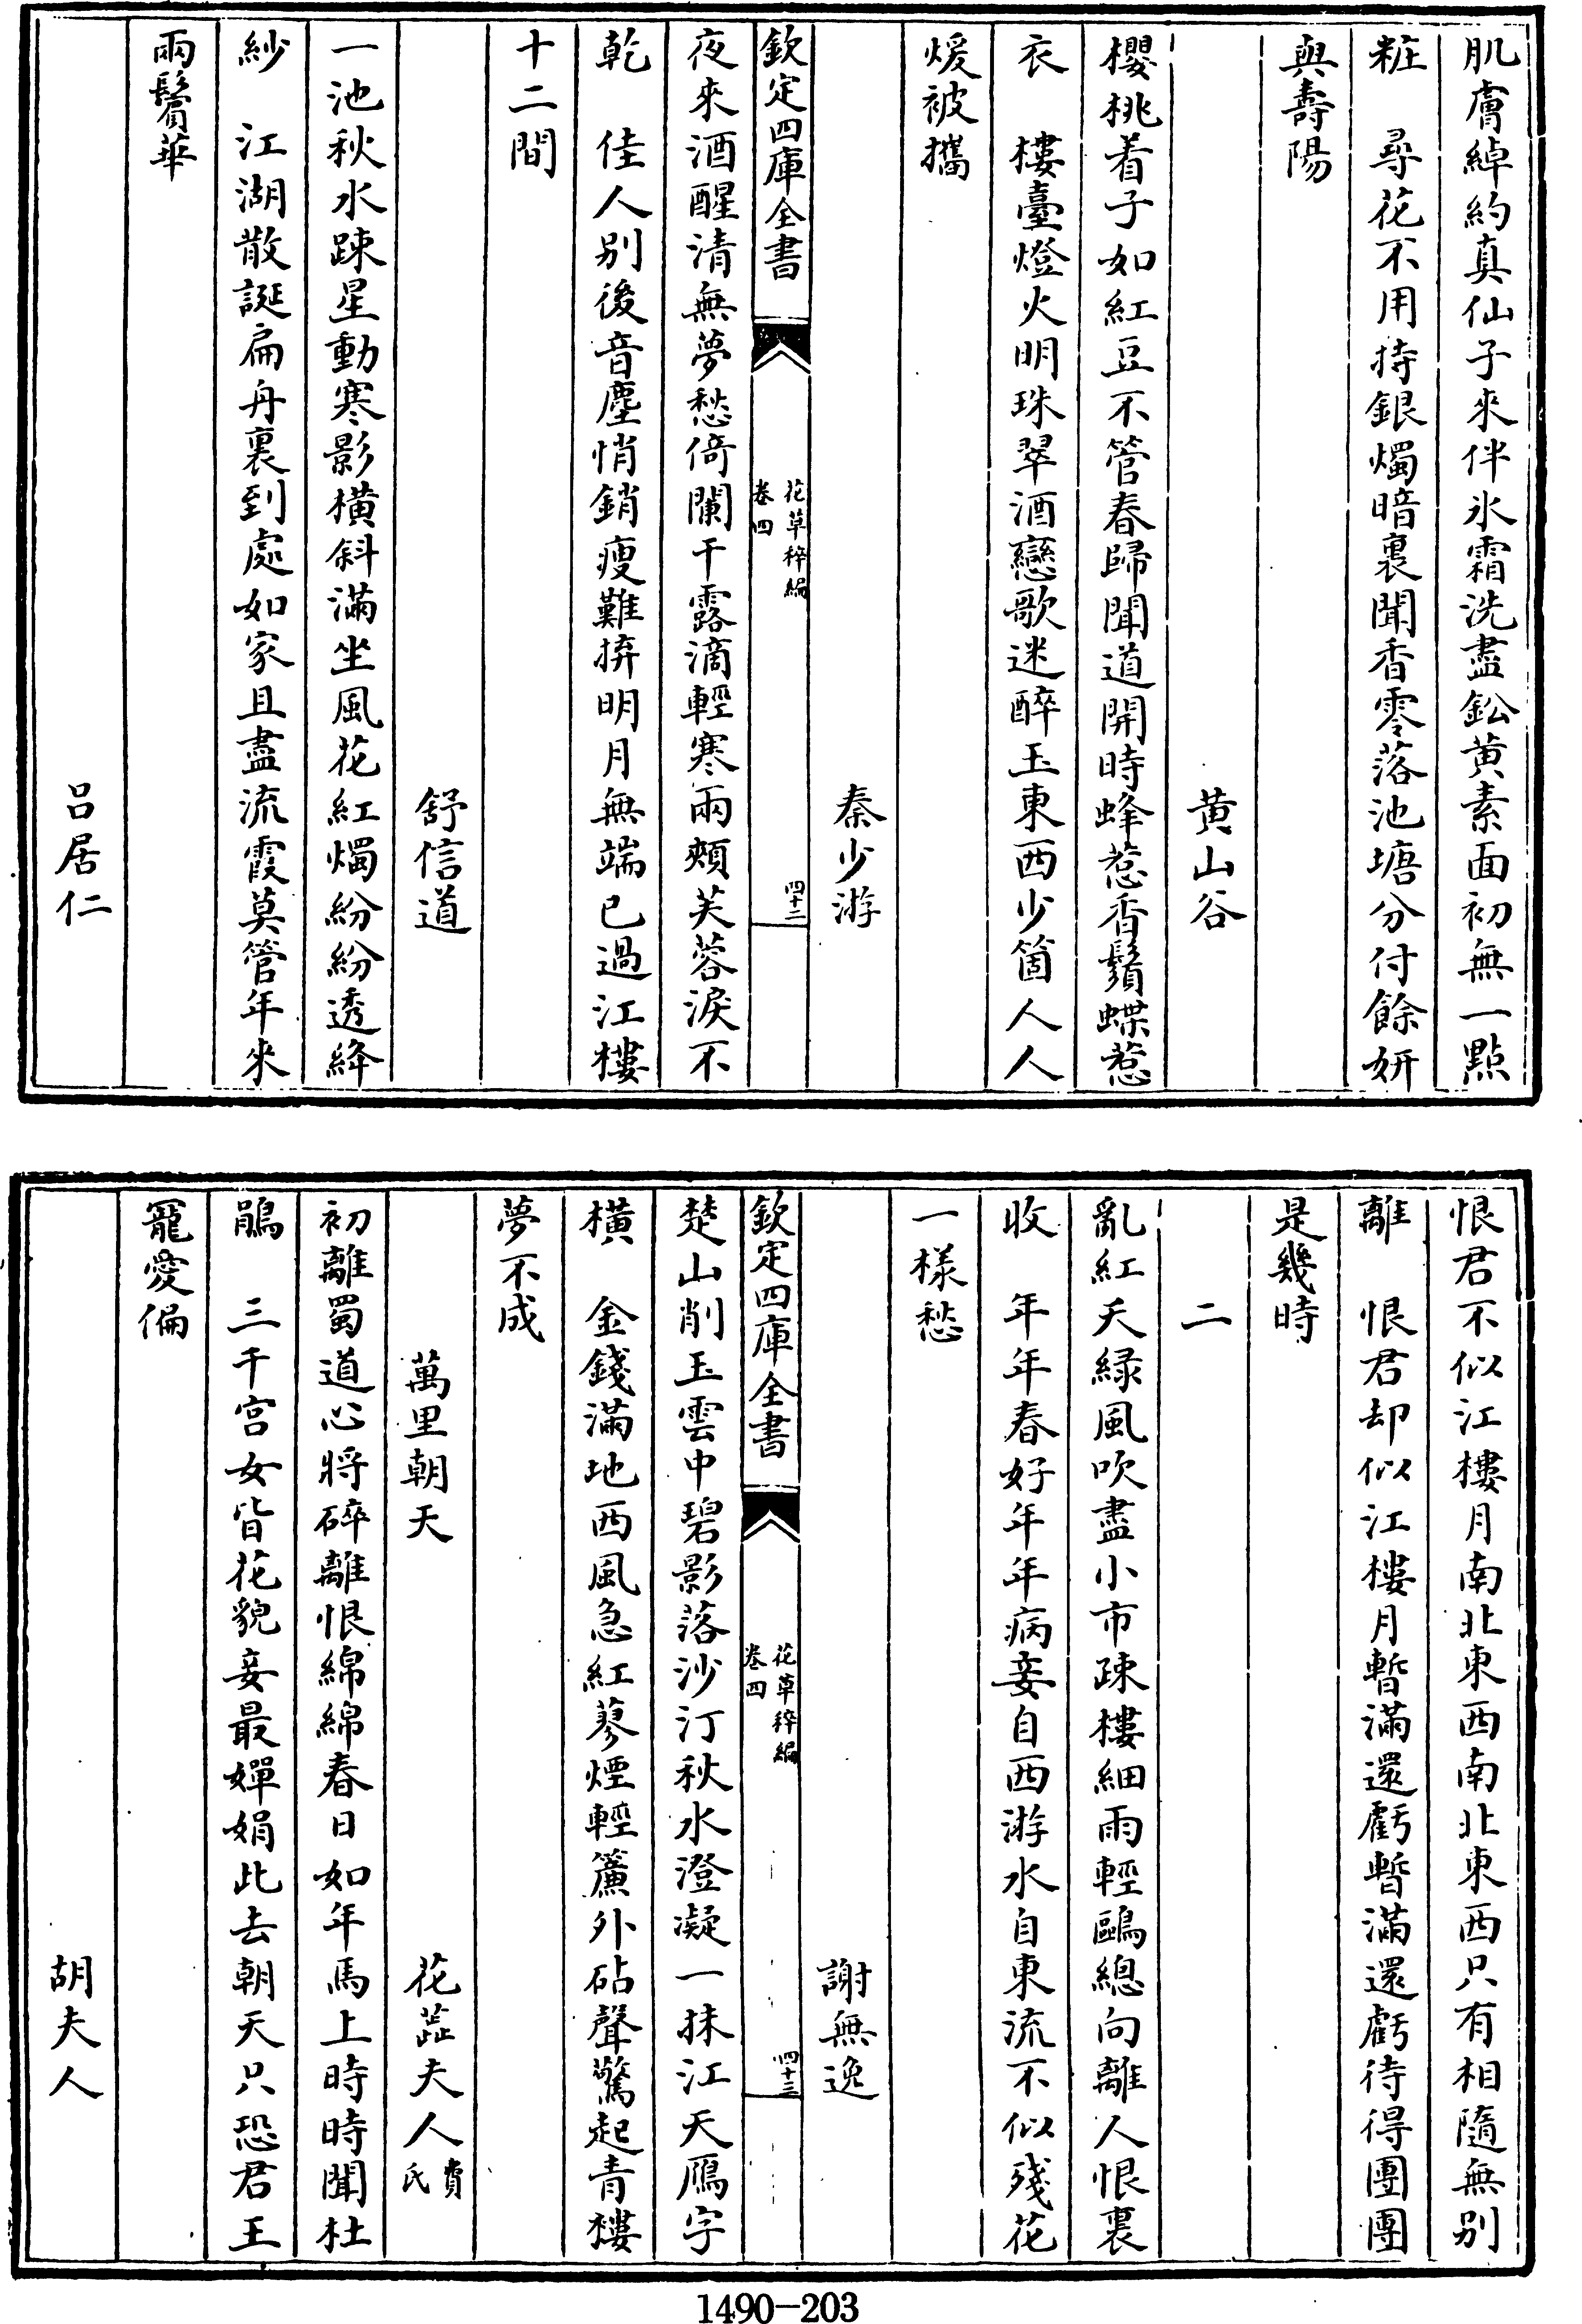 肌膚綽約真仙子來伴氷霜洗盡鈆黄素面初無一點
粧　尋花不用持銀燭暗裏聞香零落池塘分付餘妍
與壽陽
黄山谷
櫻桃着子如紅豆不管春歸聞道開時蜂惹香鬚蝶惹
衣　樓臺燈火明珠翠酒戀歌迷醉玉東西少箇人人
煖被攜
秦少游
欽定四庫全書
花草稡編
卷四
四十二
夜來酒醒清無夢愁倚闌干露滴輕寒雨頰芙蓉淚不
乾　佳人别後音塵悄銷瘦難拚明月無端已過江樓
十二間
舒信道
一池秋水踈星動寒影橫斜滿坐風花紅燭紛紛透絳
紗　江湖散誕扁舟裏到處如家且盡流霞莫管年來
兩鬢華
吕居仁
恨君不似江樓月南北東西南北東西只有相隨無别
離　恨君却似江樓月暫滿還虧暫滿還虧待得團團
是幾時
二
亂紅夭緑風吹盡小市疎樓細雨輕鷗總向離人恨裏
收　年年春好年年病妾自西游水自東流不似殘花
一樣愁
謝無逸
欽定四庫全書
花草稡編
卷四
四十三
楚山削玉雲中碧影落沙汀秋水澄凝一抹江天鴈字
橫　金錢滿地西風急紅蓼煙輕簾外砧聲驚起青樓
夢不成
萬里朝天　花蕊夫人費氏
初離蜀道心將碎離恨綿綿春日如年馬上時時聞杜
鵑　三千宫女皆花貌妾最嬋娟此去朝天只恐君王
寵愛偏
胡夫人
1490-203